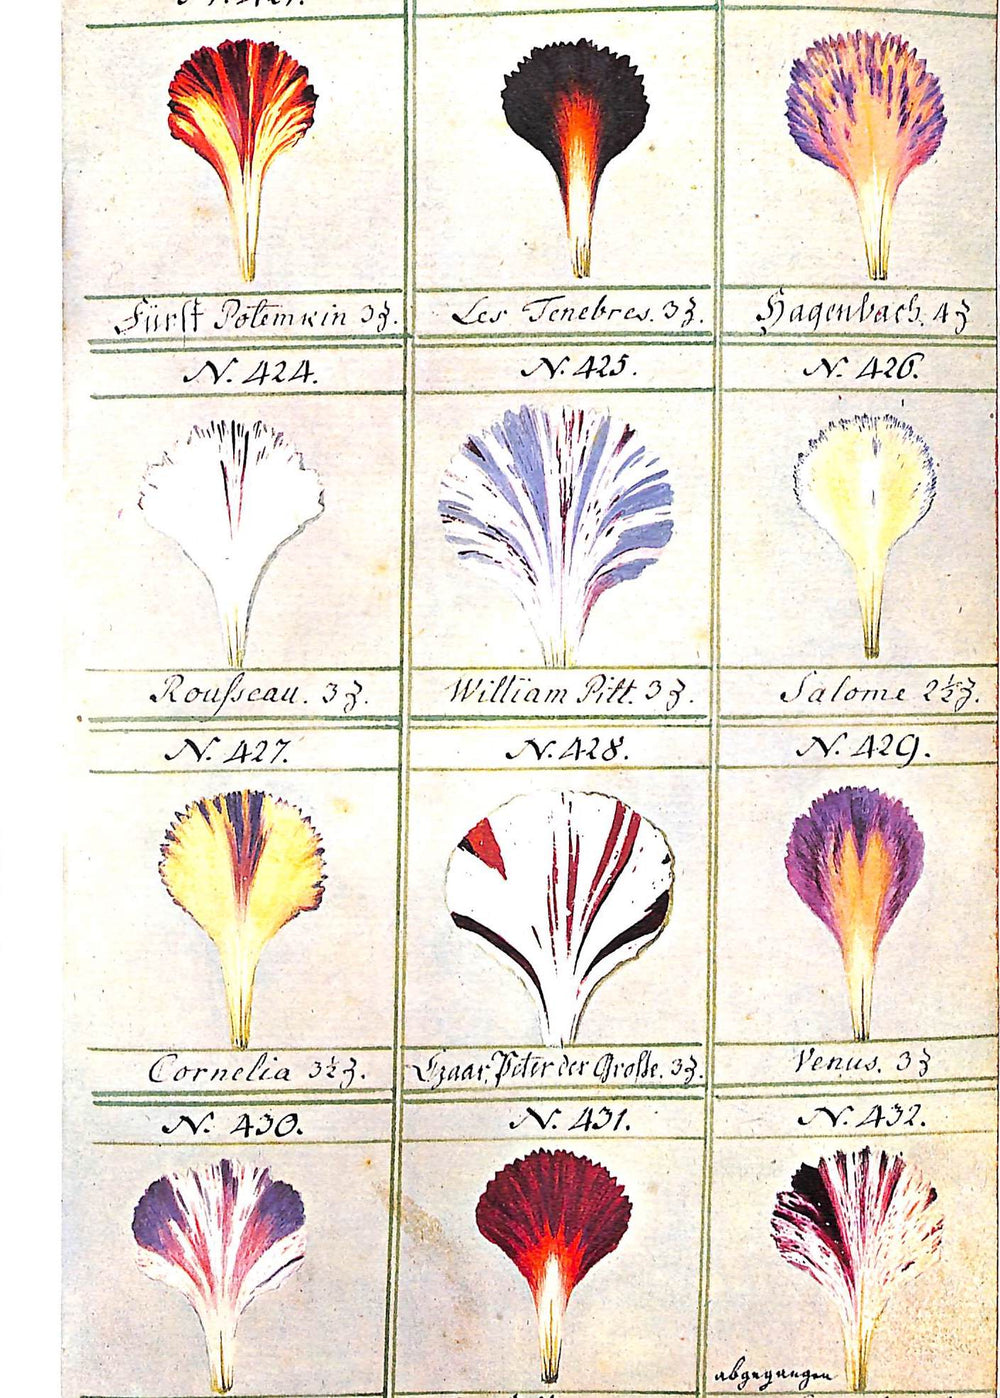 Fürst Potemkin 3 Z.
Les Tenebres. 3 Z.
Hagenbach. 4 Z
N. 424.
N. 425.
N. 426.
Rousseau. 3 Z.
William Pitt. 3 Z.
Salome 2½ Z.
N. 427.
N. 428.
N. 429.
Cornelia 3½ Z.
Czaar, Peter der Große. 3 Z.
Venus. 3 Z
N. 430.
N. 431.
N. 432.
abgegangen